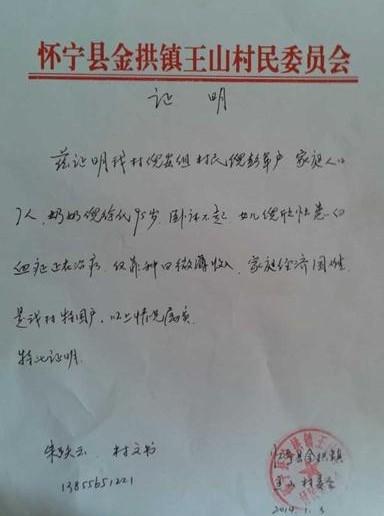 怀宁县金拱镇王山村民委员会
证 明
兹证明我村倪岩组村民倪彭年户 家庭人口
7人，奶奶倪徐氏95岁，卧床不起，女儿倪 患白
血症正在治疗，仅靠种田微薄收入，家庭经济困难，
是我村特困户，以上情况属实
特此证明
朱 云 村文书 怀宁县金拱镇
13855651221 王山村委会
2014.1.3